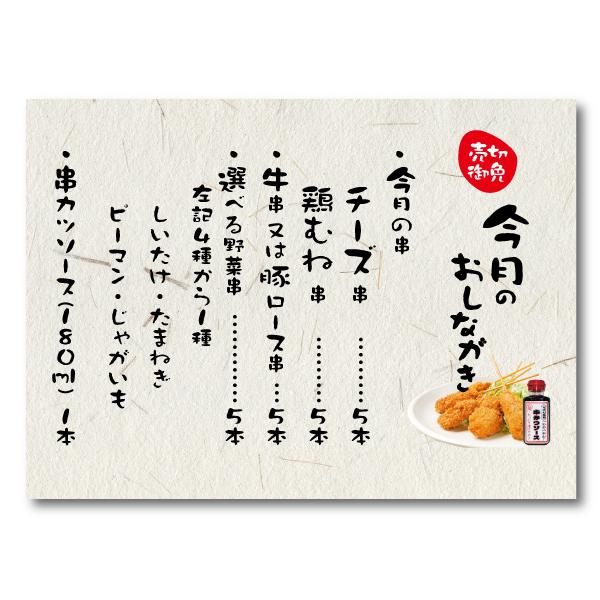 売切御免
今月の
おしながき
・今月の串
チーズ串 ………5本
鶏むね串 ………5本
・牛串又は豚ロース串 …5本
・選べる野菜串 …………5本
左記4種から1種
しいたけ・たまねぎ
ピーマン・じゃがいも
・串カツソース(180ml) 1本
串カツソース